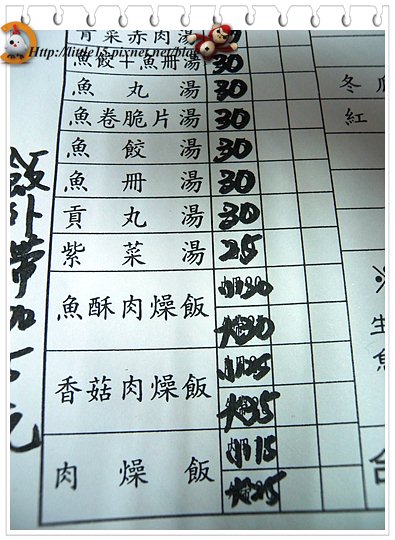 Http://little15.pixnet.net/blog
青菜赤肉湯
魚餃+魚冊湯 30
魚丸湯 30
魚卷脆片湯 30
魚餃湯 30
魚冊湯 30
貢丸湯 30
紫菜湯 25
魚酥肉燥飯 小30
香菇肉燥飯 小25
大35
肉燥飯 小15
大25
飯外帶加 元
冬
紅
※
生
魚
合